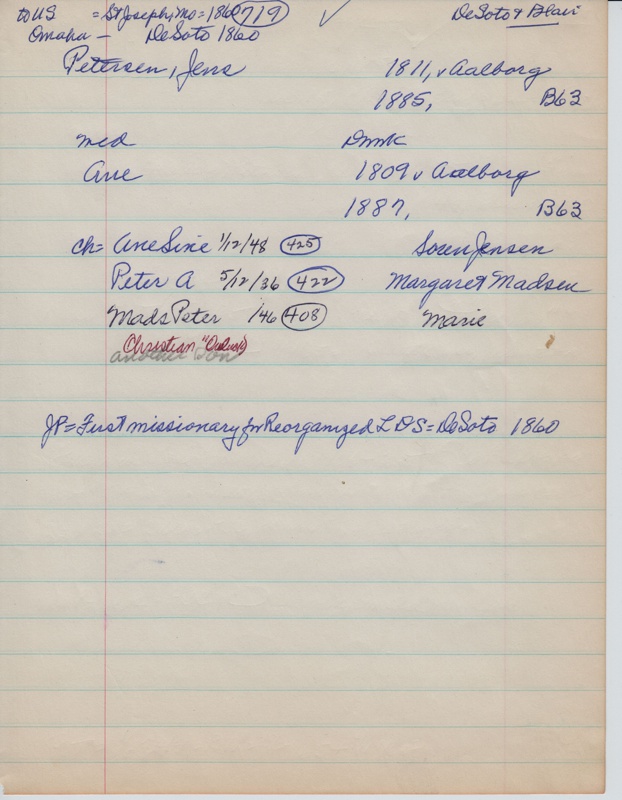 to US = St Joseph, Mo = 1860 719 ✓ DeSoto & Blair
Omaha - DeSoto 1860
Petersen, Jens 1811, v Aalborg
1885, B63
med Dmk
Ane 1809 v Aalborg
1887, B63
ch= Ane Sine 1/12/48 425 Soren Jensen
Peter A 5/12/36 422 Margaret Madsen
Mads Peter /46 408 Marie
Christian
another son
JP = First missionary for Reorganized LDS = DeSoto 1860